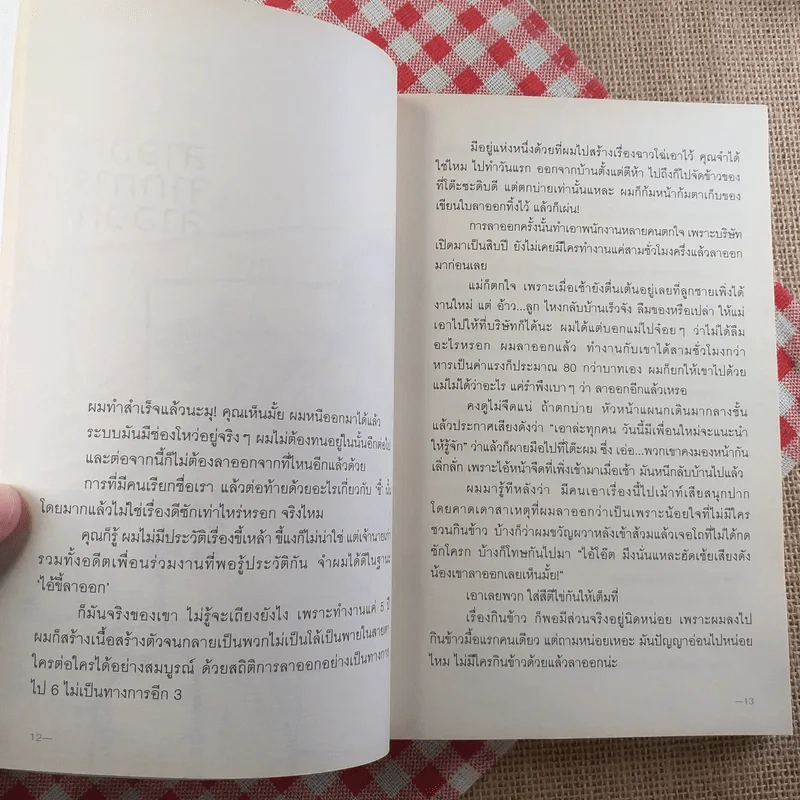 ผมทำสำเร็จแล้วนะมุ! คุณเห็นมั้ย ผมหนีออกมาได้แล้ว
ระบบมันมีช่องโหว่อยู่จริงๆ ผมไม่ต้องทนอยู่ในนั้นอีกต่อไป
และต่อจากนี้ก็ไม่ต้องลาออกจากที่ไหนอีกแล้วด้วย
การที่มีคนเรียกชื่อเรา แล้วต่อท้ายด้วยอะไรเกี่ยวกับ 'ขี้' นั้น
โดยมากแล้วไม่ใช่เรื่องดีซักเท่าไหร่หรอก จริงไหม
คุณก็รู้ ผมไม่มีประวัติเรื่องขี้เหล้า ขี้แงก็ไม่น่าใช่ แต่เจ้านายเก่า
รวมทั้งอดีตเพื่อนร่วมงานที่พอรู้ประวัติกัน จำผมได้ดีในฐานะ
'ไอ้ขี้ลาออก'
ก็มันจริงของเขา ไม่รู้จะเถียงยังไง เพราะทำงานแค่ 5 ปี
ผมก็สร้างเนื้อสร้างตัวจนกลายเป็นพวกไม่เป็นโล้เป็นพายในสายตา
ใครต่อใครได้อย่างสมบูรณ์ ด้วยสถิติการลาออกอย่างเป็นทางการ
ไป 6 ไม่เป็นทางการอีก 3
12—
มีอยู่แห่งหนึ่งด้วยที่ผมไปสร้างเรื่องฉาวโฉ่เอาไว้ คุณจำได้
ใช่ไหม ไปทำวันแรก ออกจากบ้านตั้งแต่ตีห้า ไปถึงก็ไปจัดข้าวของ
ที่โต๊ะซะดิบดี แต่ตกบ่ายเท่านั้นแหละ ผมก็ก้มหน้าก้มตาเก็บของ
เขียนใบลาออกทิ้งไว้ แล้วก็เผ่น!
การลาออกครั้งนั้นทำเอาพนักงานหลายคนตกใจ เพราะบริษัท
เปิดมาเป็นสิบปี ยังไม่เคยมีใครทำงานแค่สามชั่วโมงครึ่งแล้วลาออก
มาก่อนเลย
แม่ก็ตกใจ เพราะเมื่อเช้ายังตื่นเต้นอยู่เลยที่ลูกชายเพิ่งได้
งานใหม่ แต่ อ้าว...ลูก ไหงกลับบ้านเร็วจัง ลืมของหรือเปล่า ให้แม่
เอาไปให้ที่บริษัทก็ได้นะ ผมได้แต่บอกแม่ไปจ๋อยๆ ว่าไม่ได้ลืม
อะไรหรอก ผมลาออกแล้ว ทำงานกับเขาได้สามชั่วโมงกว่า
หารเป็นค่าแรงก็ประมาณ 80 กว่าบาทเอง ผมก็ยกให้เขาไปด้วย
แม่ไม่ได้ว่าอะไร แค่รำพึงเบาๆ ว่า ลาออกอีกแล้วเหรอ
คงดูไม่จืดแน่ ถ้าตกบ่าย หัวหน้าแผนกเดินมากลางชั้น
แล้วประกาศเสียงดังว่า "เอาล่ะทุกคน วันนี้มีเพื่อนใหม่จะแนะนำ
ให้รู้จัก" ว่าแล้วก็ผายมือไปที่โต๊ะผม ซึ่ง เอ่อ...พวกเขาคงมองหน้ากัน
เลิ่กลั่ก เพราะไอ้หน้าจืดที่เพิ่งเข้ามาเมื่อเช้า มันหนีกลับบ้านไปแล้ว
ผมมารู้ทีหลังว่า มีคนเอาเรื่องนี้ไปเม้าท์เสียสนุกปาก
โดยคาดเดาสาเหตุที่ผมลาออกว่าเป็นเพราะน้อยใจที่ไม่มีใคร
ชวนกินข้าว บ้างก็ว่าผมขวัญผวาหลังเข้าส้วมแล้วเจอโถที่ไม่ได้กด
ชักโครก บ้างก็โทษกันไปมา "ไอ้โอ๊ต มึงนั่นแหละฮัดเช้ยเสียงดัง
น้องเขาลาออกเลยเห็นมั้ย!"
เอาเลยพวก ใส่สีตีไข่กันให้เต็มที่
เรื่องกินข้าว ก็พอมีส่วนจริงอยู่นิดหน่อย เพราะผมลงไป
กินข้าวมื้อแรกคนเดียว แต่ถามหน่อยเหอะ มันปัญญาอ่อนไปหน่อย
ไหม ไม่มีใครกินข้าวด้วยแล้วลาออกน่ะ
—13